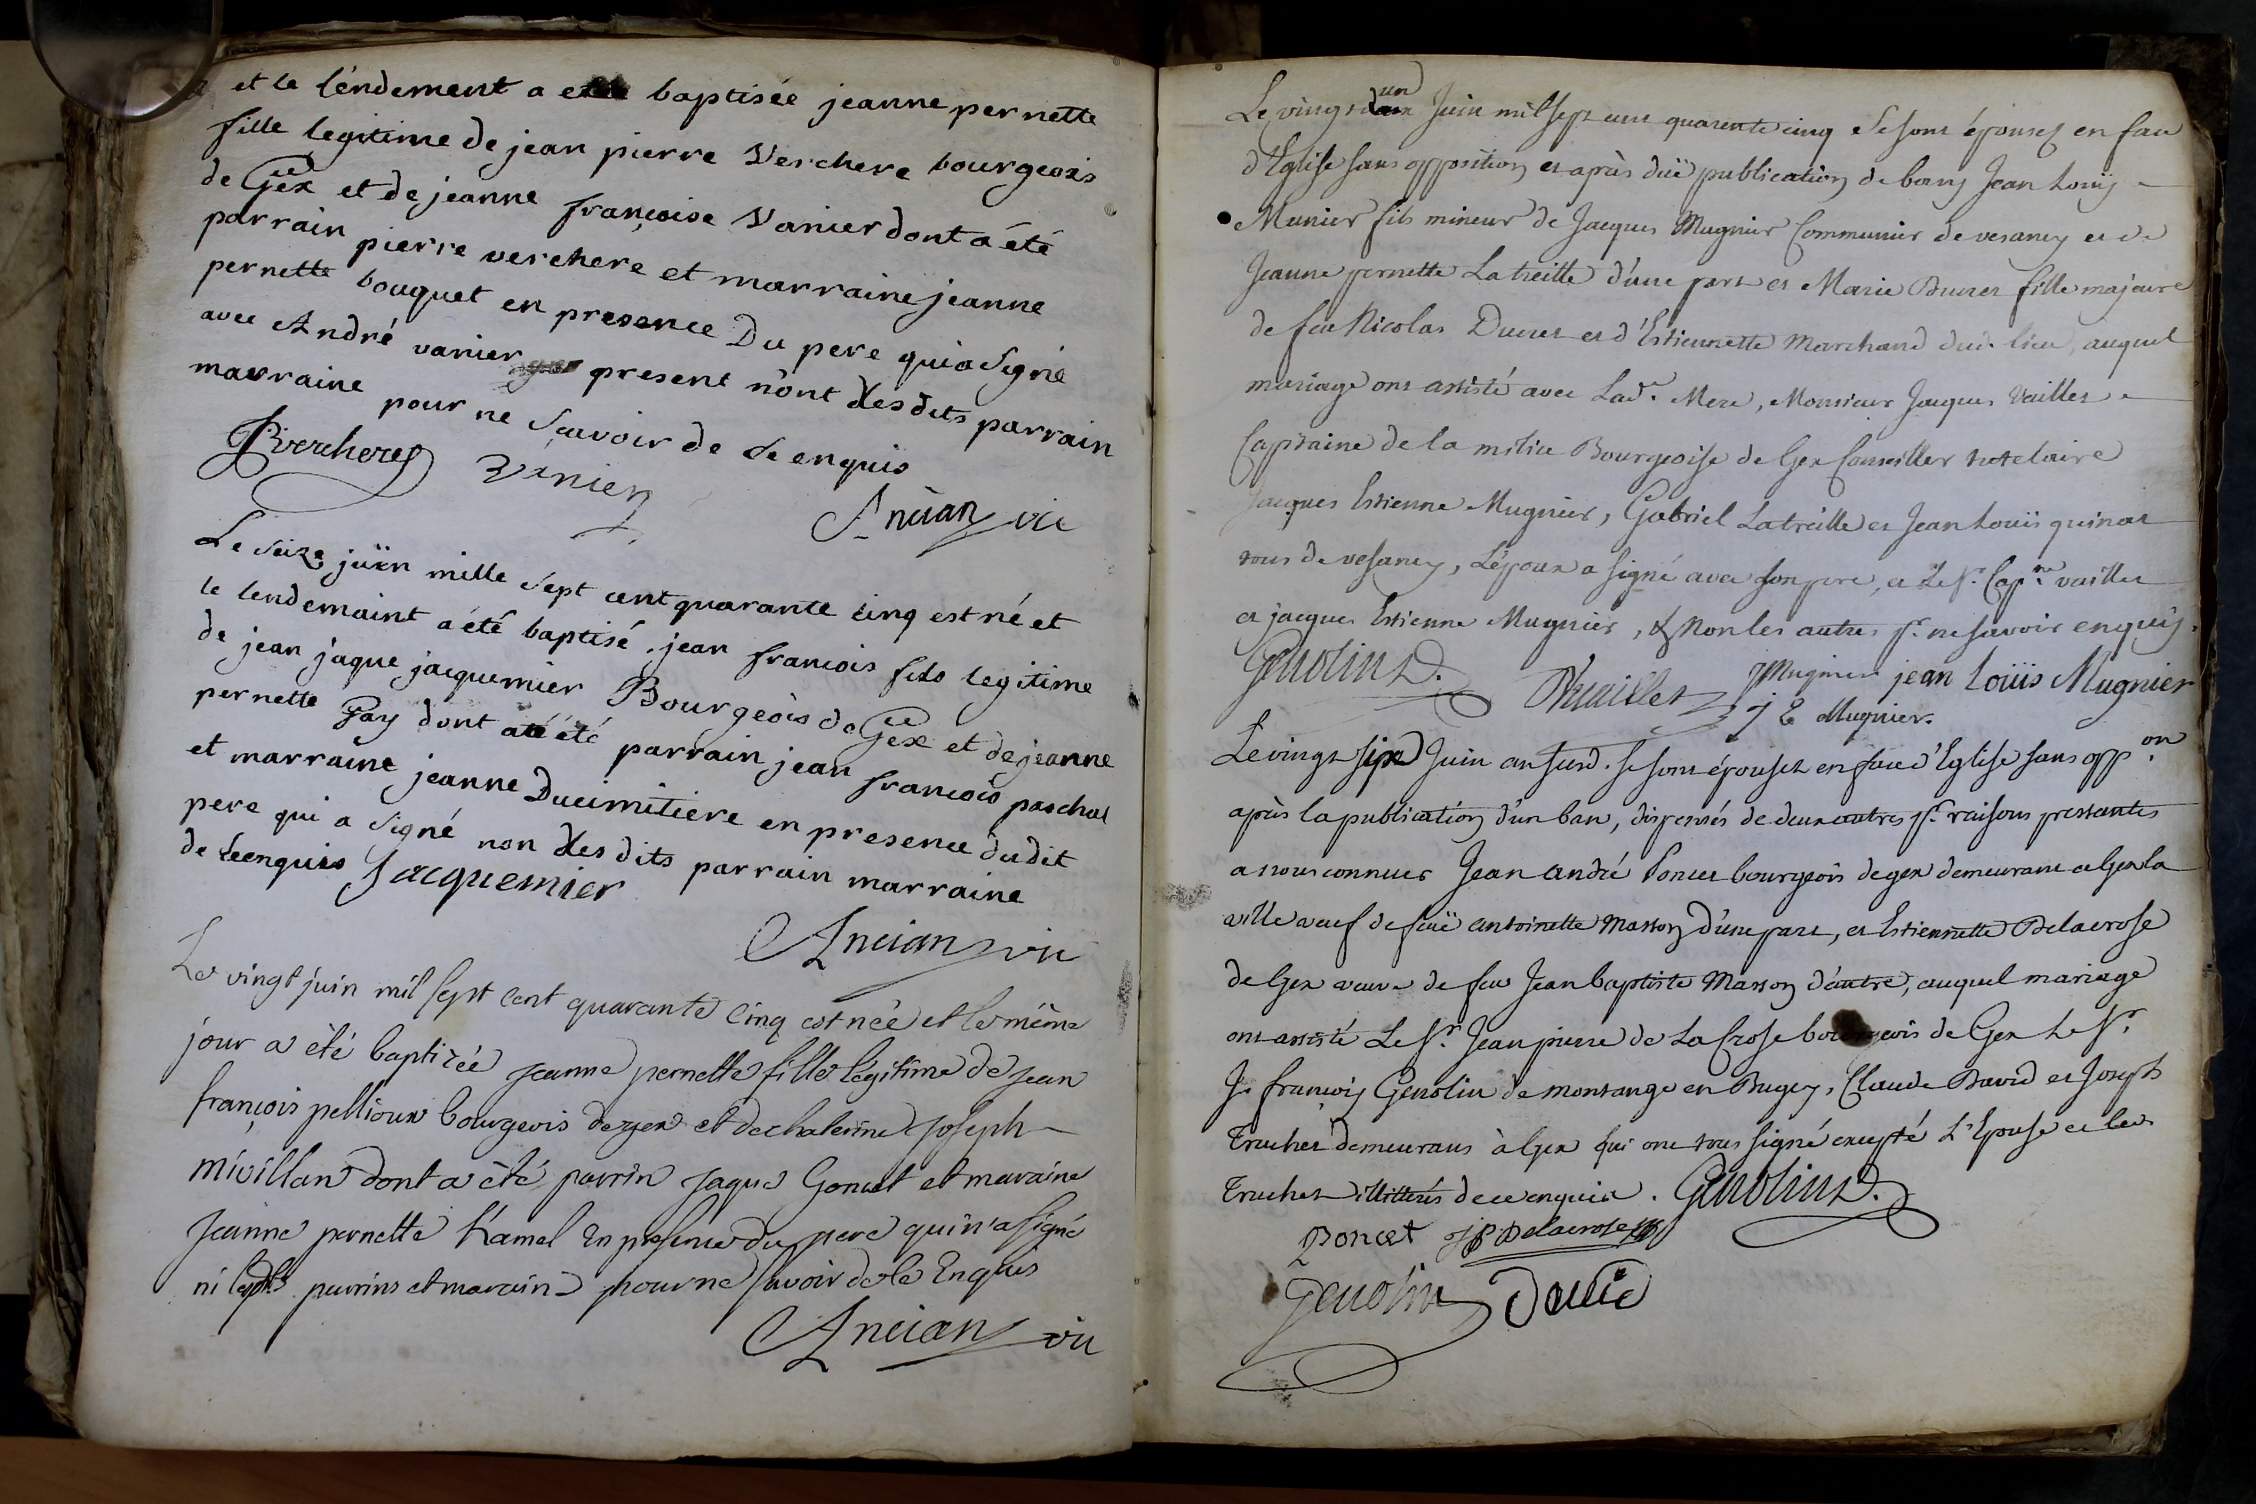 et le léndement a eté baptisée jeanne pernette
fille legitime de jean pierre Verchere bourgeois
de Gex et de jeanne françoise Vanier dont a été
parrain pierre verchere et marraine jeanne
pernette bouquet en presence Du pere qui a signé
avec André vanier present nont desdits parrain
marraine pour ne scavoir de le enquis
JPverchere vanier
Ancian vic
Le seize juïn mille sept cent quarante cinq est né et
le lendemaint a été baptisé jean francois fils legitime
de jean jaque jacquemier Bourgeois de Gex et de jeanne
pernette Fay dont a été parrain jean francois paschal
et marraine jeanne Ducimitiere en presence dudit
pere qui a signé non des dits parrain marraine
de leenquis Jacquemier
Ancian vic
Le vingt juin mil sept cent quarante cinq est née et le même
jour a été baptizée jeanne pernette fille legitime de jean
françois pellioux bourgeois de gex et de chaterine joseph
mivillan dont a été parrin jaque Goncet et maraine
Jeanne pernette hamel En presence du pere qui n'a signé
ni lesdts parrins et maraine pour ne savoir de le Enquis
Ancian vic
Le vingt un Juin mil sept cent quarente cinq se sont épousez en face
d'Eglise sans opposition et après düe publication de bans Jean Louis
Munier fils mineur de Jacques Mugnier Communier de vesancy et de
Jeanne pernette Latreille d'une part et Marie Ducret fille majeure
de feu Nicolas Ducret et d'Estiennette Marchand dud. lieu, auquel
mariage ont assisté avec Lad.e Mere, Monsieur Jacques Vaillet
Capitaine de la milice Bourgeoise de Gex Conseiller
Jacques Estienne Mugnier, Gabriel Latreille et Jean Louïs quinat
tous de vesancy, L'époux a signé avec son pere, et Le Sr. Cap.ne vaillet
et jacques Estienne Mugnier, & Non les autres pr. ne savoir enquis.
Genolin D. Vaillet J Mugnier jean Loüis Mugnier
J E Mugnier.
Le vingt six Juin an susd. se sont épousez en face d'Eglise sans opp.on
après la publication d'un ban, dispensés de deux autres pr. raisons pressantes
a nous connues Jean André Poncet bourgeois de gex demeurant a Gex la
ville veuf de feüe antoinette Masson d'une part, et Estiennette Delacrose
de Gex veuve de feu Jean baptiste Masson d'autre, auquel mariage
ont assisté Le Sr. Jean pierre de La Crose bourgeois de Gex Le Sr.
J. françois Genolin de montange en Bugey, Claude David et Joseph
Truchet demeurans à Gex qui ont tous signé excepté L'Epouse et led.
Truchet illitterés de ce enquis. Genolin D.
Poncet JP Delacrose
Genolin David